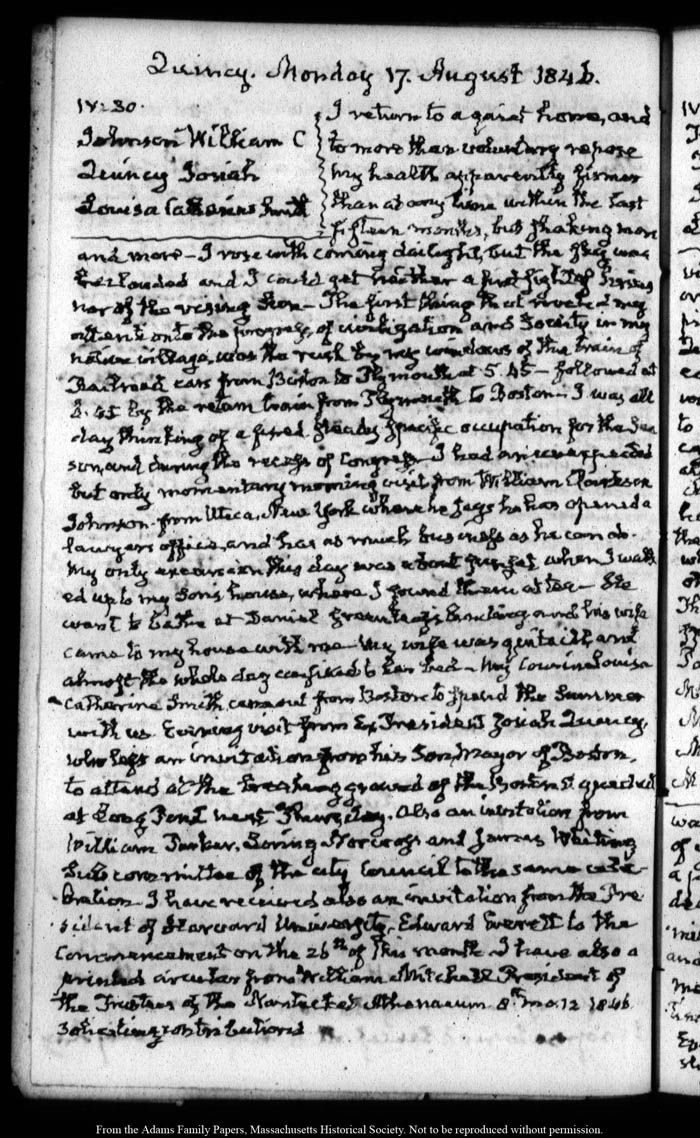 Quincy. Monday 17. August 1846.
IV:30.
Johnson William C
Quincy Josiah
Louisa Catherine Smith
I return to a quiet home, and
to more than voluntary repose
my health apparently firmer
than at any time within the last
fifteen months, but shaking more
and more — I rose with coming daylight, but the sky was
beclouded and I could get neither a first sight of Sirius
nor of the rising Sun — The first thing that struck my
attention to the progress of civilization and Society in my
native village, was the rush by my windows of the train of
Railroad cars from Boston to Plymouth at 5.45 — followed at
8.45 by the return train from Plymouth to Boston — I was all
day thinking of a fixed steady specific occupation for the Sea
son, and during the recess of Congress — I had an unexpected
but only momentary morning visit from William Clarkson
Johnson from Utica, New York where he says he has opened a
lawyers office, and has as much business as he can do.
My only excursion this day was about sunset, when I walk
ed up to my Son's house, where I found them at tea — He
went to bathe at Daniel Greenleaf's landing and his wife
came to my house with me — My wife was quite ill, and
almost the whole day confined to her bed — My Cousin Louisa
Catherine Smith came out from Boston to spend the Summer
with us. Evening visit from Ex President Josiah Quincy,
who left an invitation from his Son, Mayor of Boston,
to attend at the breaking ground of the Boston aqueduct
at Long Pond next Thursday. Also an invitation from
William Parker, Loring Norcross and James Whiting
Sub committee of the city Council to the same cele-
bration — I have received also an invitation from the Pre
sident of Harvard University, Edward Everett to the
Commencement on the 26th of this month. I have also a
printed circular from William Mitchell President of
the Trustees of the Nantucket Athenaeum 8th mo. 12 1846
Soliciting contributions
From the Adams Family Papers, Massachusetts Historical Society. Not to be reproduced without permission.